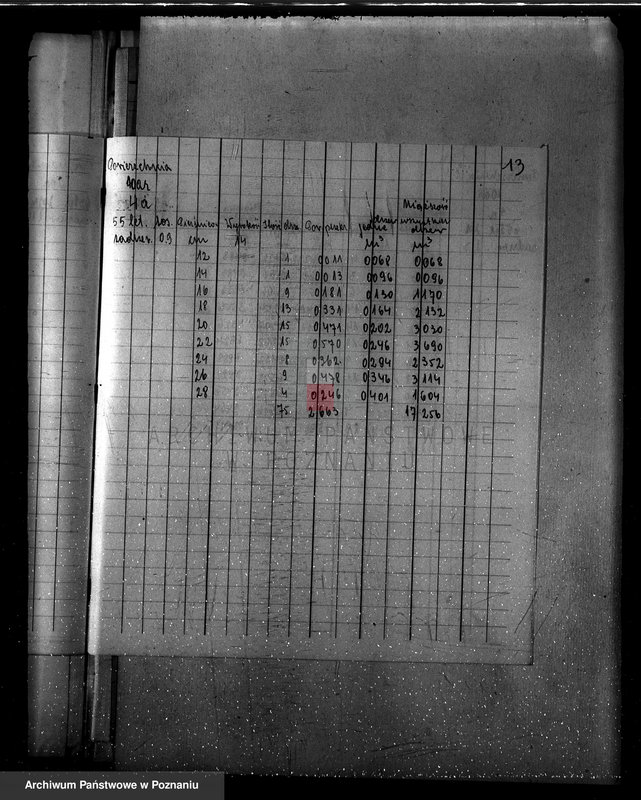 13
Powierzchnia
4 a
55 let. sos.
zadrz. 0,9
cm 14 m³ m³
12 1 0 011 0 068 0 068
14 1 0 013 0 096 0 096
16 9 0 181 0 130 1 170
18 13 0 331 0 164 2 132
20 15 0 471 0 202 3 030
22 15 0 570 0 246 3 690
24 8 0 362 0 294 2 352
26 9 0 478 0 346 3 114
28 4 0 246 0 401 1 604
75 2 663 17 256
ARCHIWUM PAŃSTWOWE
W POZNANIU
Archiwum Państwowe w Poznaniu